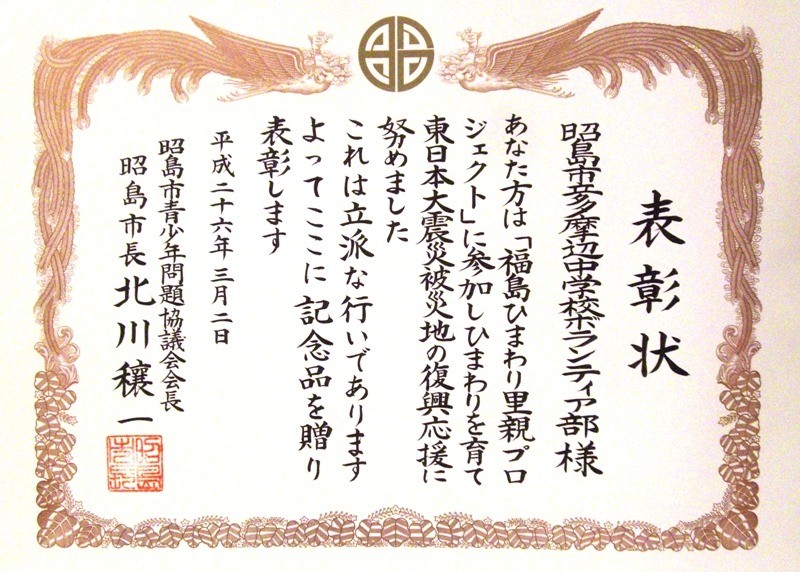 表彰状
昭島市立多摩辺中学校ボランティア部様
あなた方は「福島ひまわり里親プロ
ジェクト」に参加しひまわりを育て
東日本大震災被災地の復興応援に
努めました
これは立派な行いであります
よってここに記念品を贈り
表彰します
平成二十六年三月二日
昭島市青少年問題協議会会長
昭島市長 北川穰一